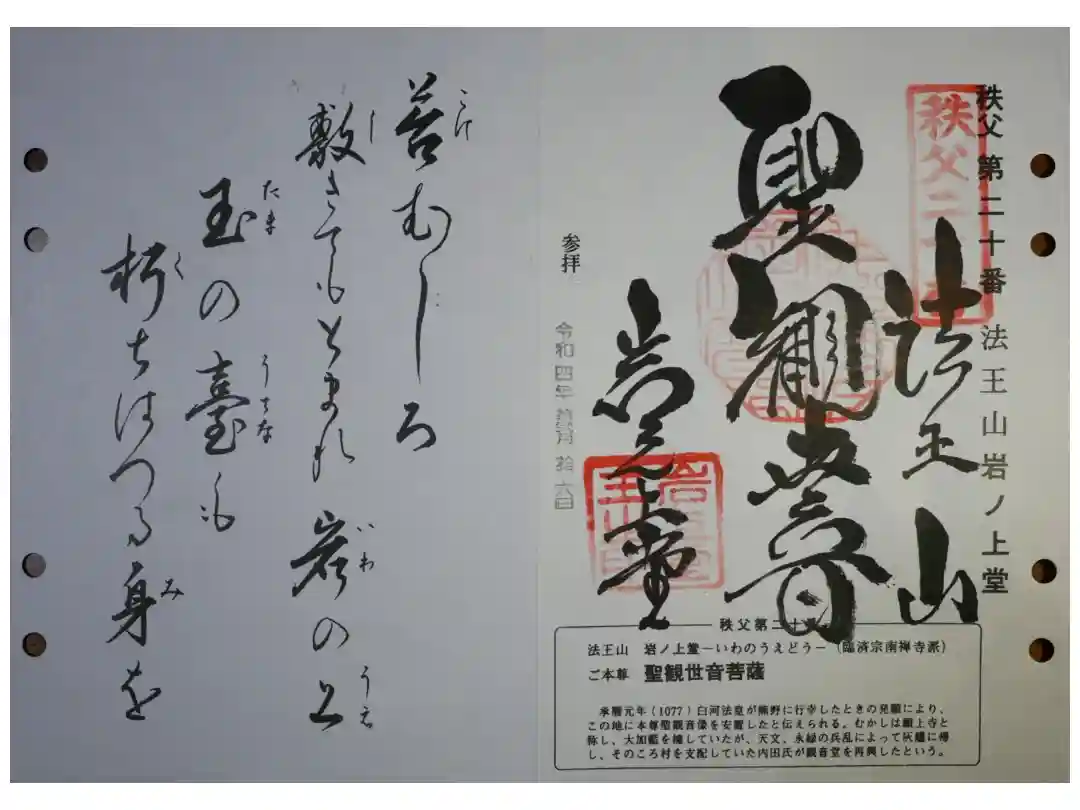 秩父第二十番 法王山岩ノ上堂
秩父二十番
法王山
聖観世音
岩之上堂
参拝 令和四年 月拾六日
秩父第二十番
法王山 岩ノ上堂−いわのうえどう−(臨済宗南禅寺派)
ご本尊 聖観世音菩薩
承暦元年(1077)白河法皇が熊野に行幸したときの発願により、
この地に本尊聖観音像を安置したと伝えられる。むかしは願上寺と
称し、大加藍を擁していたが、天文、永禄の兵乱によって灰燼に帰
し、そのころ村を支配していた内田氏が観音堂を再興したという。
こけ
苔むしろ
し いわ うえ
敷きてもとまれ 岩の上
たま うてな
玉の臺も
く み
朽ちはつる身を